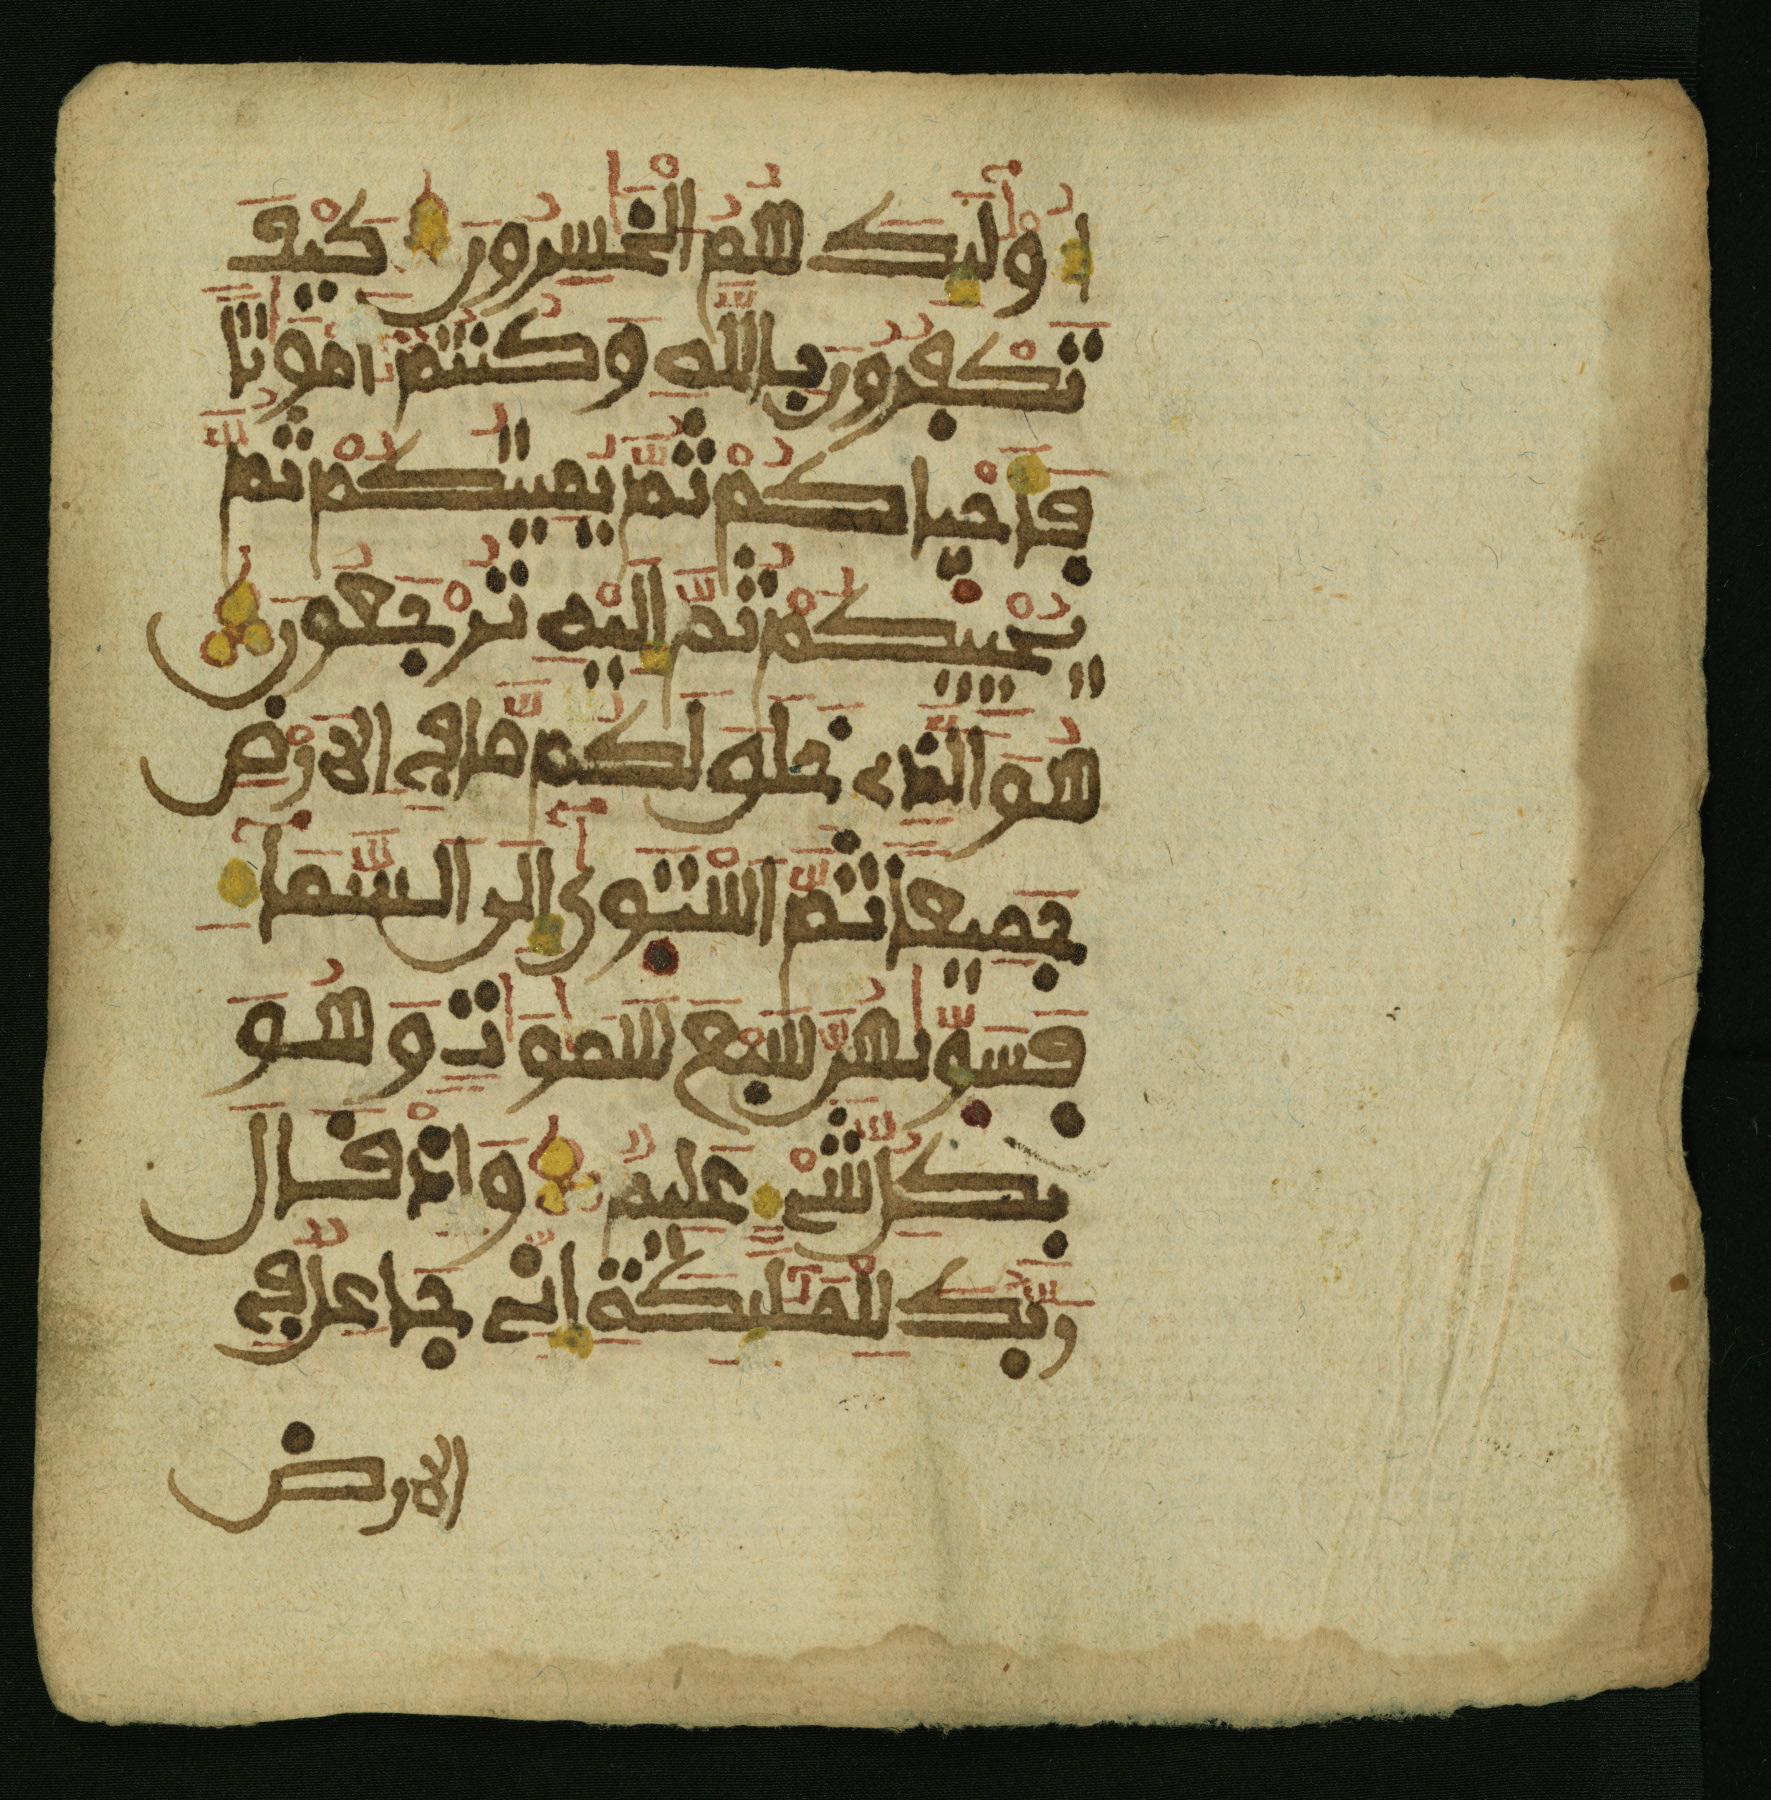 أُولَٰئِكَ هُمُ الْخَٰسِرُونَ كَيْفَ
تَكْفُرُونَ بِاللَّهِ وَكُنتُمْ أَمْوَٰتًا
فَأَحْيَاكُمْ ثُمَّ يُمِيتُكُمْ ثُمَّ
يُحْيِيكُمْ ثُمَّ إِلَيْهِ تُرْجَعُونَ
هُوَ الَّذِي خَلَقَ لَكُم مَّا فِي الْأَرْضِ
جَمِيعًا ثُمَّ اسْتَوَىٰ إِلَى السَّمَآءِ
فَسَوَّىٰهُنَّ سَبْعَ سَمَٰوَٰتٍ وَهُوَ
بِكُلِّ شَيْءٍ عَلِيمٌ وَإِذْ قَالَ
رَبُّكَ لِلْمَلَٰٓئِكَةِ إِنِّي جَاعِلٌ فِي
الارض